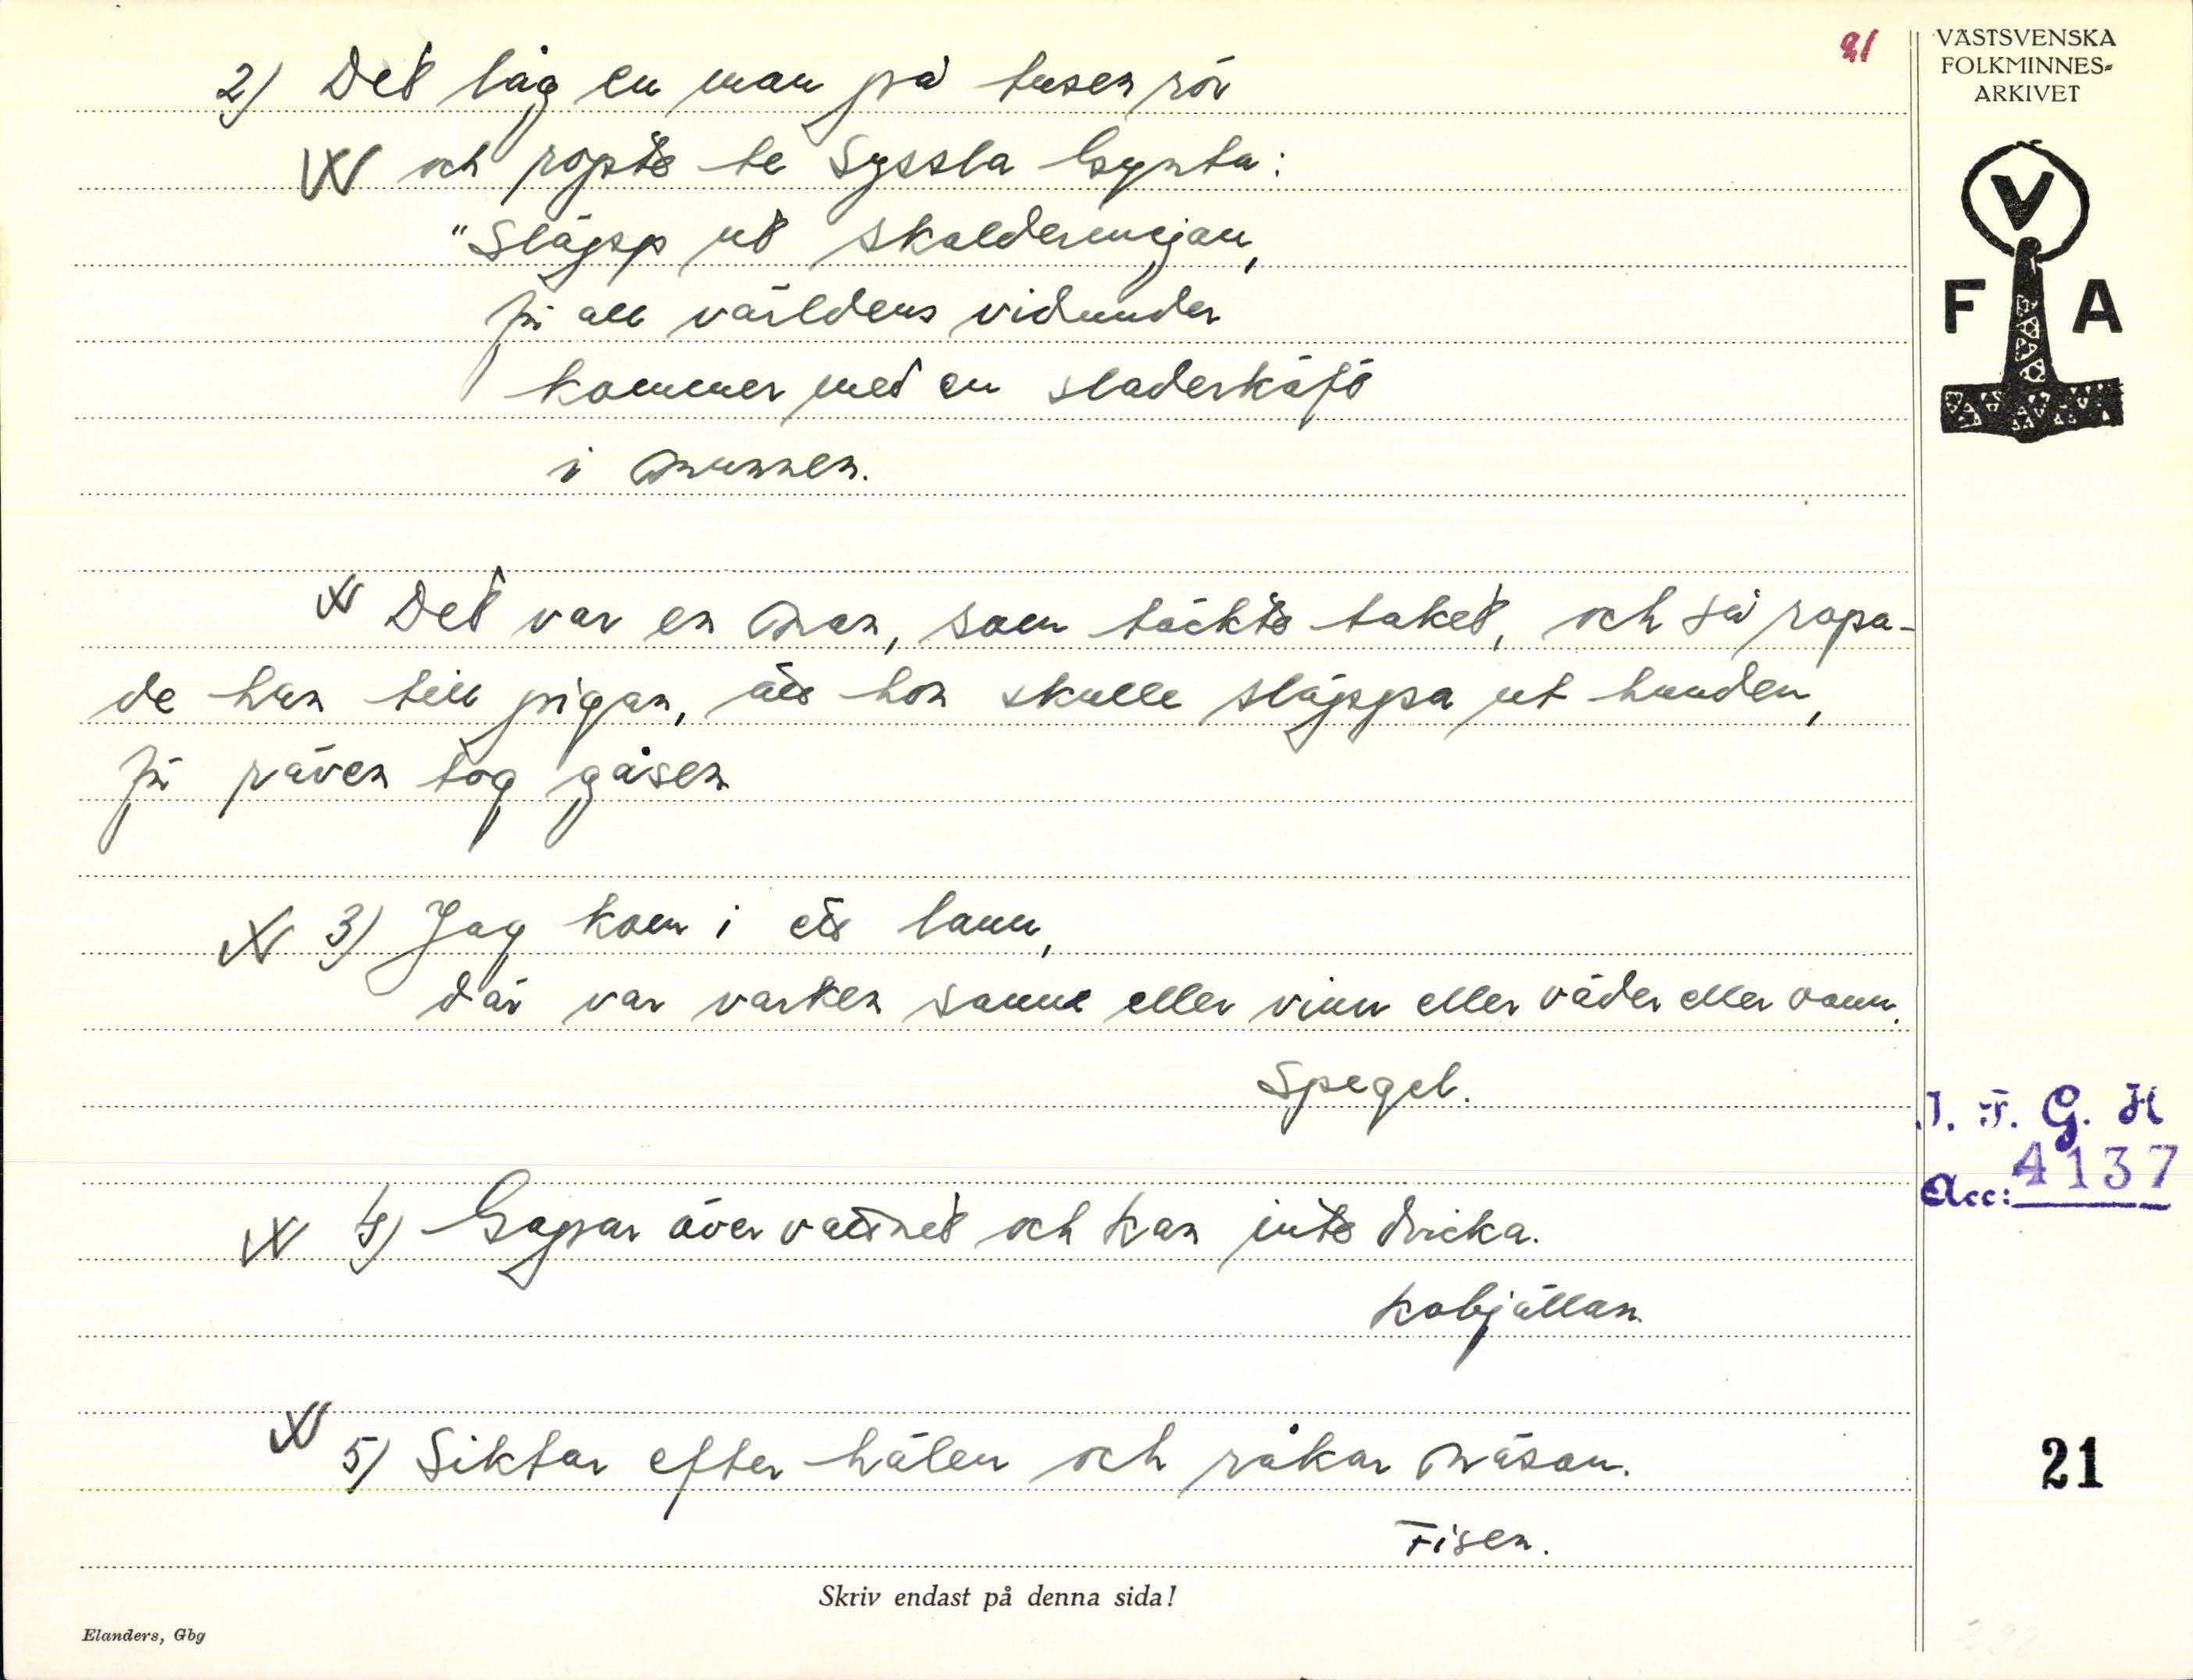 21
VÄSTSVENSKA
FOLKMINNES-
ARKIVET
V
F A
2) Det låg en man på tusen rör
och ropte te Syssla Gynta:
"Släpp ut skaldermejan,
för all världens vidunder
kommer med en sladerkäft
i munnen.
Det var en man, som täckte taket, och så ropa-
de han till pigan, att hon skulle släppa ut hunden,
för räven tog gåsen
3) Jag kom i ett lann,
där var varken sanne eller vinn eller väder eller vann.
Spegel.
J. F. G. H
Acc: 4137
4) Gapar över vattnet och kan inte dricka.
Kobjällan.
5) Siktar efter hälen och råkar näsan.
Fisen.
21
Skriv endast på denna sida!
Elanders, Gbg